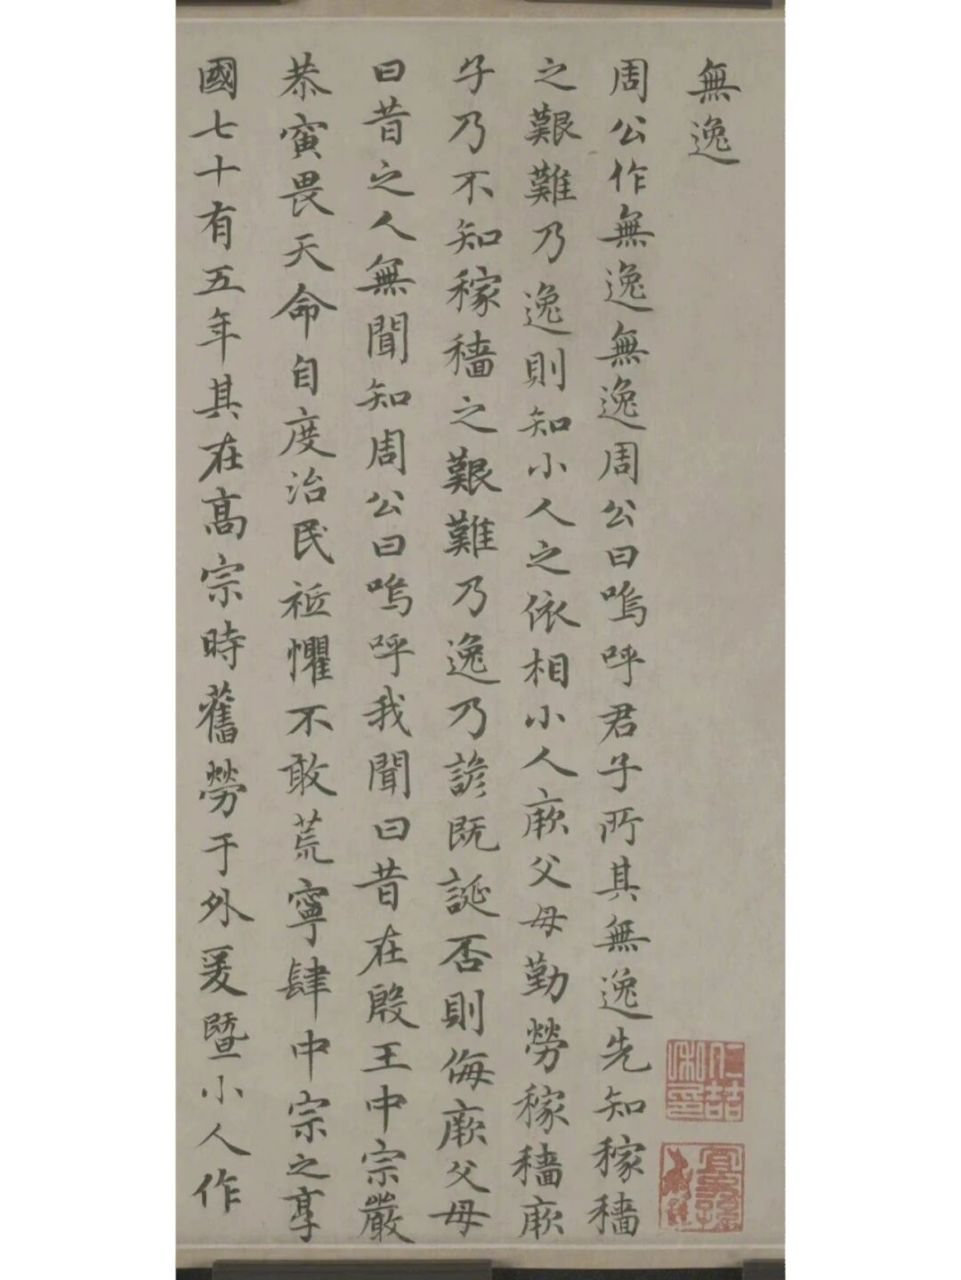 無逸
周公作無逸無逸周公曰嗚呼君子所其無逸先知稼穡
之艱難乃逸則知小人之依相小人厥父母勤勞稼穡厥
子乃不知稼穡之艱難乃逸乃諺既誕否則侮厥父母
曰昔之人無聞知周公曰嗚呼我聞曰昔在殷王中宗嚴
恭寅畏天命自度治民祗懼不敢荒寧肆中宗之享
國七十有五年其在高宗時舊勞于外爰暨小人作
仁喆私印